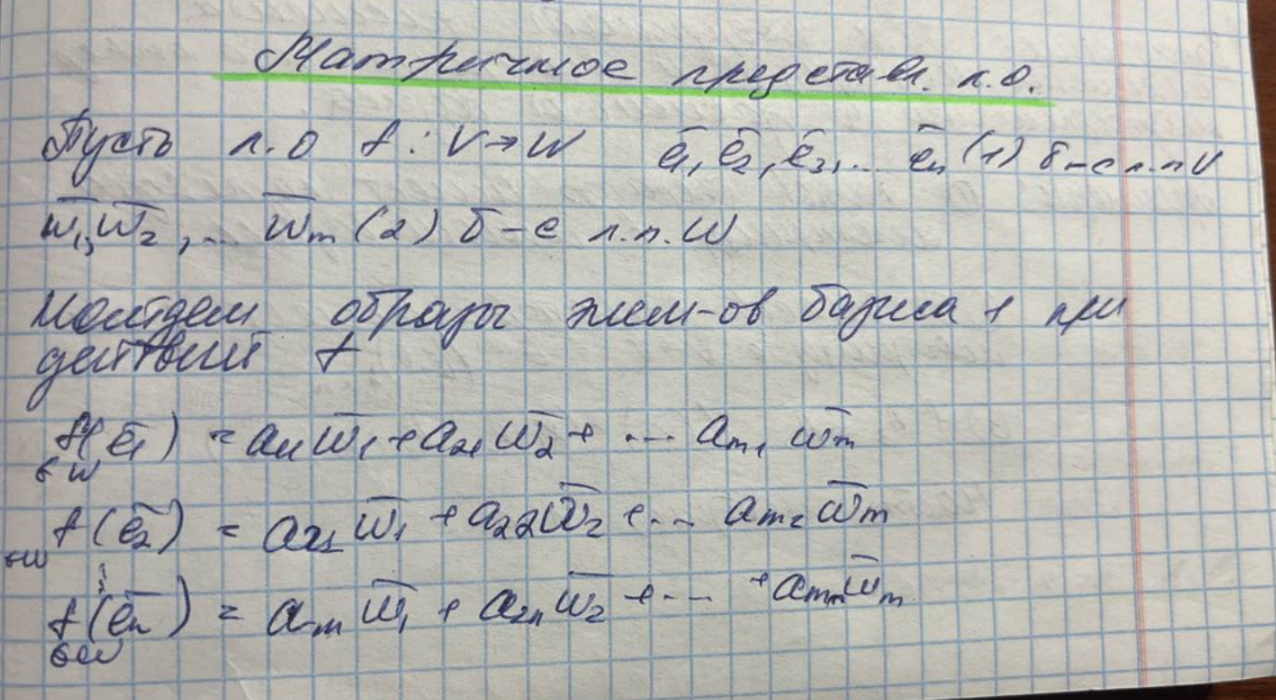 Матричное представл. л.о.
Пусть л.о f : V→W e̅₁, e̅₂, e̅₃, ... e̅ₙ (1) б-с л.п V
w̅₁, w̅₂, ... w̅ₘ (2) б-с л.п. W
Найдем образы элем-ов базиса 1 при
действии f
f(e̅₁) = a₁₁w̅₁ + a₂₁w̅₂ + ... aₘ₁ w̅ₘ
∈W
f(e̅₂) = a₂₁w̅₁ + a₂₂w̅₂ + ... aₘ₂w̅ₘ
∈W
⋮
f(e̅ₙ) = a₁ₙ w̅₁ + a₂ₙw̅₂ + ... + aₘₙw̅ₘ
∈W